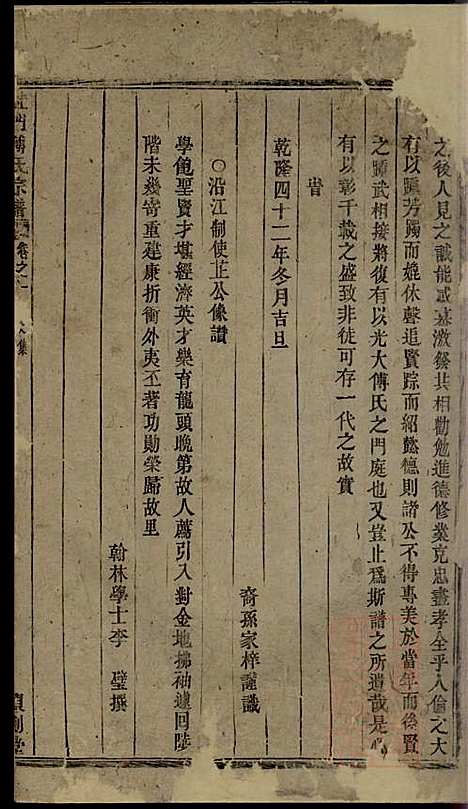 之後人見之誠能感慕激發共相勸勉進德修業克忠盡孝全乎人倫之大
有以躡芳躅而嫓休聲追賢踪而紹懿德則諸公不得專美於當年而後賢
之踵武相接將復有以光大傅氏之門庭也又豈止爲斯譜之所遺哉是
有以彰千載之盛致非徒可存一代之故實
旹
乾隆四十二年冬月吉旦
裔孫家梓謹識
○沿江制使芷公像讚
學飽聖賢才堪經濟英才樂育龍頭晚第故人薦引入對金地拂袖遽回陸
階未幾寄重建康折衝外夷丕著功勛榮歸故里
翰林學士李 璧撰
門傅氏宗譜 卷之一